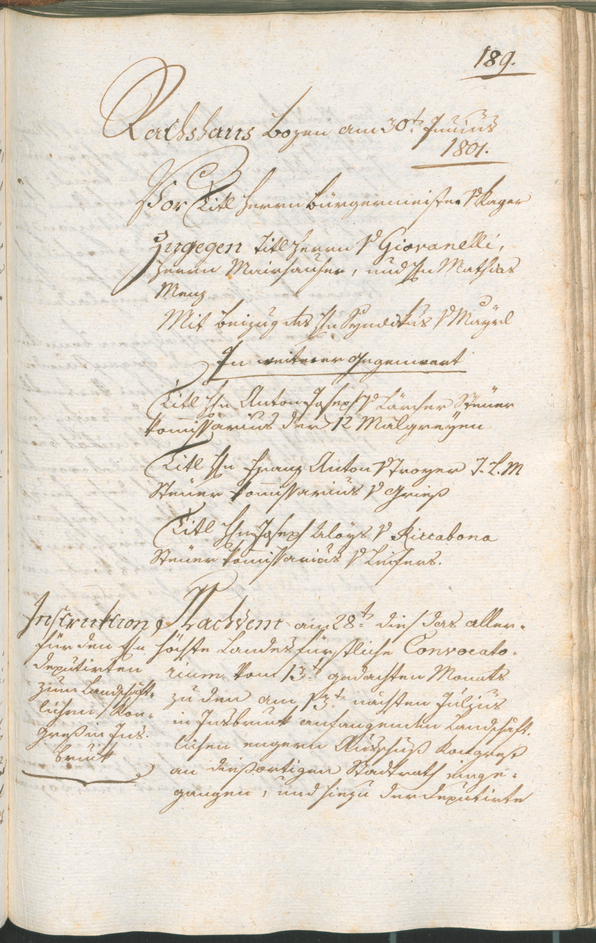 189.
Rathshaus Bozen am 30t. Junius
1801.
Vor Titl Herrn Bürgermeister v Kager
Zugegen Titl Herrn v Giovanelli,
Herrn Mairhauser, und Hn Mathias
Menz
Mit beizug des Hn Syndikus v Mayrl
In weiterer Gegenwart
Titl Hn Anton Joseph v Lärcher Steuer
Komißarius der 12 Malgreyen
Titl Hn Franz Anton v Troyer I. L. M
Steuer Komißarius v Grieß
Titl Hn Joseph Aloys v Riccabona
Steuer Komißarius v Leifers.
Instruktion
für den Hn
deputirten
zum Landschaft-
lichen Kon-
greß in Ins-
bruk
Nachdem am 28t. dieß das aller-
höchste Landesfürstliche Convocato-
rium vom 13t. gedachten Monats
zu dem am 13t. nächsten Julius
in Insbruk anfangenden Landschaft-
lichen engern Ausschuß Kongreß
an dießortigen Stadtrath einge-
gangen, und hiezu der deputirte